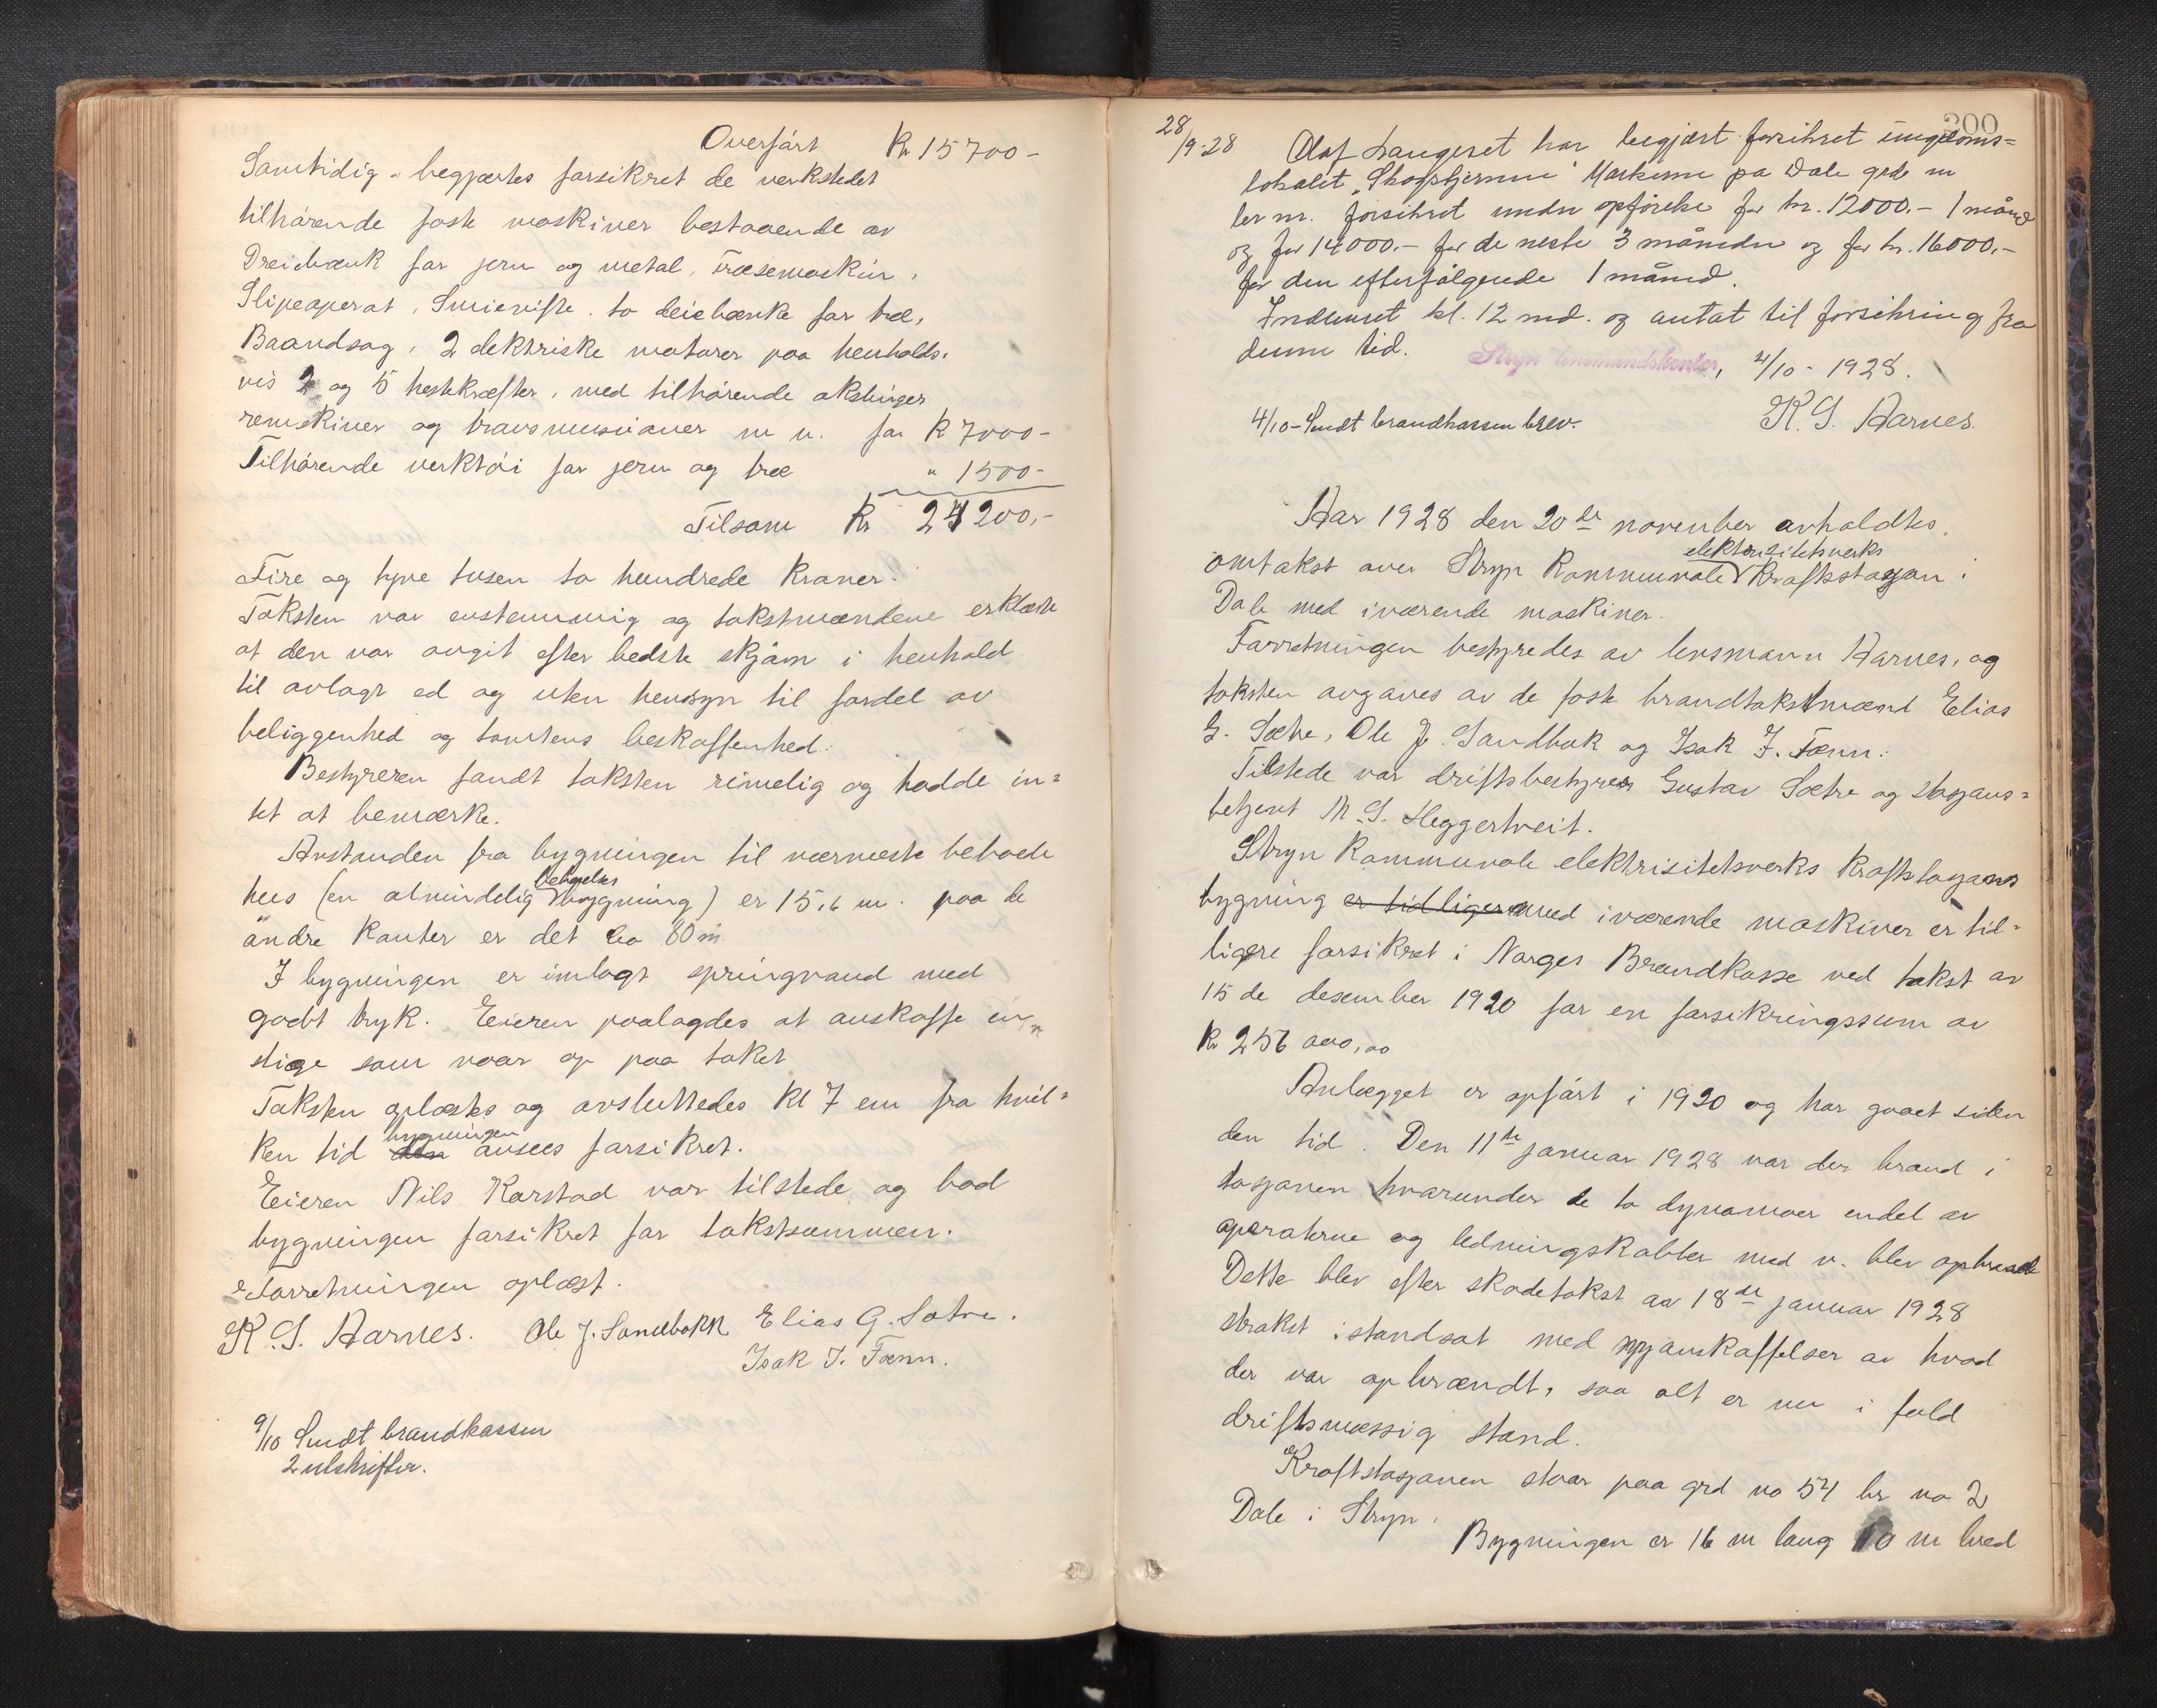 Overført Kr 15700-
Samtidig begjærtes forsikret de verkstedet
tilhørende faste maskiner bestaaende av
Dreiebænk for jern og metal, Fræsemaskin,
Slipeaperat, Smievifte, to deiebænke for træ,
Baandsag, 2 elektriske motorer paa henholds-
vis 2 og 5 hestekræfter, med tilhørende akslinger
remskiver og transmissioner m v. for K 7000-
Tilhørende verktøi for jern og træ " 1500-
Tilsam Kr 24200,-
Fire og tyve tusen to hundrede kroner.
Taksten var enstemmig og takstmændene erklærte
at den var avgit efter bedste skjøn i henhold
til avlagt ed og uten hensyn til fordel av
beliggenhed og tomtens beskaffenhed.
Bestyreren fandt taksten rimelig og hadde in=
tet at bemærke.
Avstanden fra bygningen til nærmeste beboede
bebyggelses
hus (en almindelig bygning) er 15,6 m. paa de
andre kanter er det ca 80 m
I bygningen er innlagt springvand med
godt tryk. Eieren paalagdes at anskaffe en
stige som naar op paa taket
Taksten oplæstes og avsluttedes Kl 7 em fra hvil=
bygningen
ken tid den ansees forsikret.
Eieren Nils Karstad var tilstede og bad
bygningen forsikret for takstsummen.
Forretningen oplæst.
K. S. Aarnes. Ole J. Sandbakk Elias G. Sætre.
Isak J. Fænn.
9/10 Sendt brandkassen
2 utskrifter.
300
28/9-28 Olaf Langeset har begjært forsikret ungdoms=
lokalet "Skogstjernen" Markene på Dale grd no
br nr. forsikret under opførelse for kr. 12000.- 1 måned
og for 14000.- for de neste 3 måneder og for kr. 16000.-
for den efterfølgende 1 måned.
Innkomet kl. 12 md. og antat til forsikring fra
denne tid. Stryn lensmandskontor, 4/10 - 1928.
4/10 - Sendt brandkassen brev. K. S. Aarnes.
Aar 1928 den 20de november avholdtes
elektrisitetsverks
omtakst over Stryn Kommunale Kraftstasjon i
Dale med iværende maskiner.
Forretningen bestyredes av lensmann Aarnes, og
taksten avgaves av de faste brandtakstmænd Elias
G. Sætre, Ole J. Sandbak og Isak J. Fænn.
Tilstede var driftsbestyrer Gustav Sætre og stasjons=
betjent M. S. Heggertveit.
Stryn Kommunale elektrisitetsverks Kraftstasjons
bygning er tidligere med iværende maskiner er tid=
ligere forsikret i Norges Brandkasse ved takst av
15 de desember 1920 for en forsikringssum av
Kr 256 000,00
Anlægget er opført i 1920 og har gaaet siden
den tid. Den 11te januar 1928 var der brand i
stasjonen hvorunder de to dynamoer endel av
aperaterne og ledningskabler med v. blev opbrændt
Dette blev efter skadetakst av 18de januar 1928
strakst istandsat med nyanskaffelser av hvad
der var opbrændt, saa alt er nu i fuld
driftsmessig stand.
Kraftstasjonen staar paa grd no 54 br no 2
Dale i Stryn.
Bygningen er 16 m lang 10 m bred